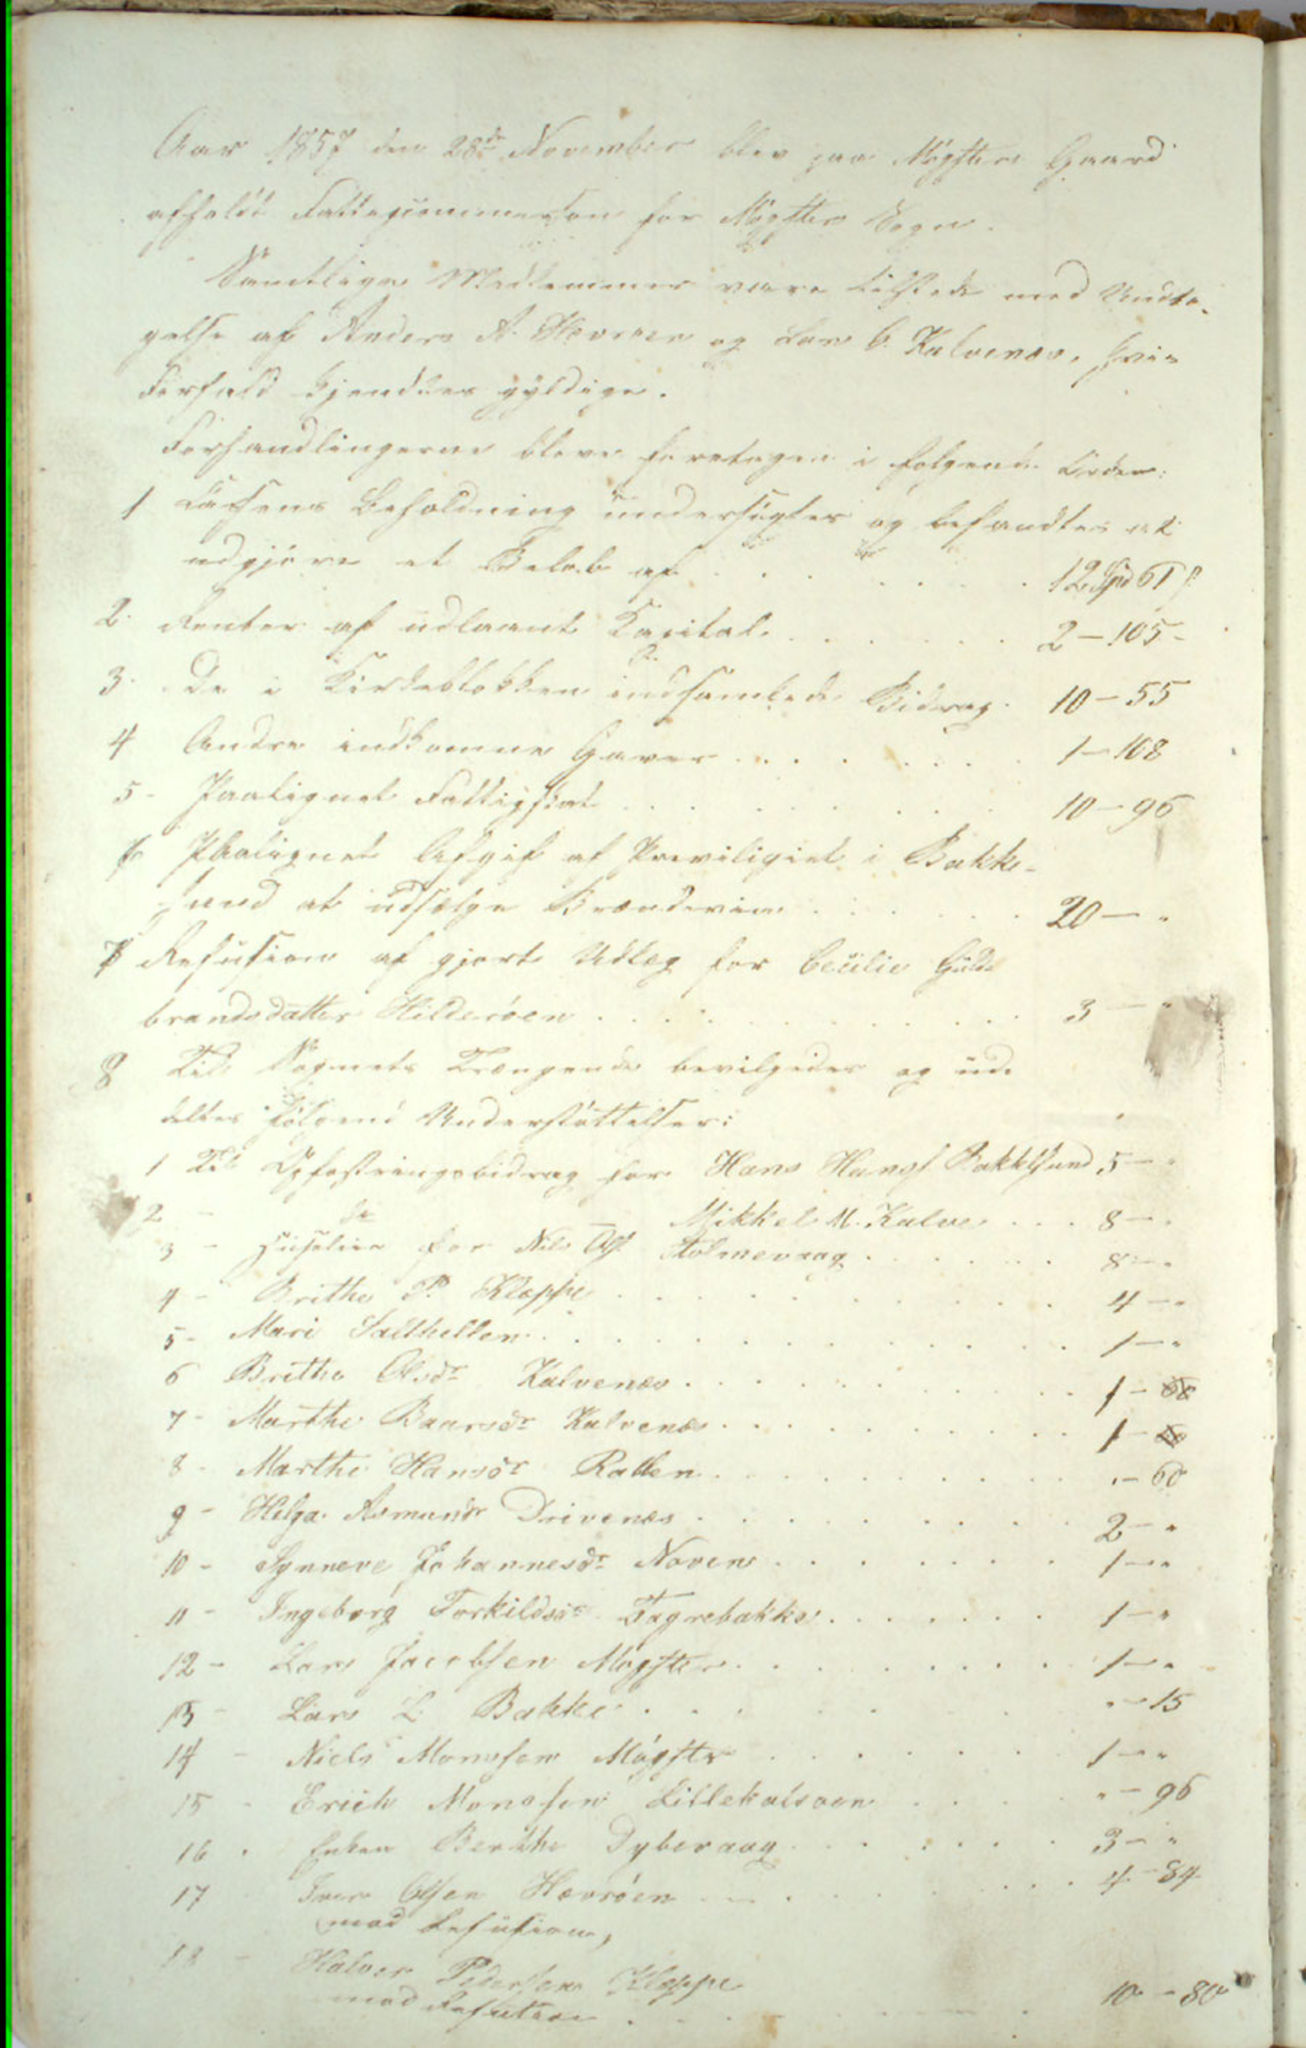 Aar 1857 den 28de November blev paa Møgster Gaard
afholdt Fattigcommission for Møgster Sogn.
Samtlige Medlemmer vare tilstede med Undta-
gelse af Anders A. Hevrøen og Lars C. Kalvenæs, hvis
Forfald kjendtes gyldige.
Forhandlingerne bleve foretagen i følgende Orden:
1 Cassens Beholdning undersøgtes og befandtes at
udgjøre et Beløb af . . . . . . . 12 Spd 61 ß
2. Renter af udlaant Kapital . . . . . . 2 – 105 –
3. De i Kirkeblokken indsamlede Bidrag . 10 – 55
4 Andre indkomne Gaver . . . . . . . 1 – 108
5 – Paalignet Fattigskat . . . . . . . 10 – 96
6 Paalignet Afgift af Previligiet i Bakke-
sund at udsælge Brændeviin . . . . . . 20 – "
7 Refusion af gjort Udlæg for Ceülie Guld
brandsdatter Hilderøen . . . . . . . . 3 – "
8 Til Sognets Trængende bevilgedes og ud-
deltes følgend Understøttelser:
1 Til Opfostringsbidrag for Hans Hansf Bakkesund 5 – "
2 – do Mikkel M. Kalve . . . 8 – "
3 – Huusleie for Nils Ols. Stolmevaag . . . . . 8 – "
4 – Brithe P. Kleppe . . . . . . . . 4 – "
5 – Mari Salthellen . . . . . . . . 1 – "
6 Brithe Olsdr Kalvenæs . . . . . . . . 1 –
7 – Marthe Baarsdr Kalvenæs . . . . . . . . 1 –
8 – Marthe Hansdr Rabben . . . . . . . . " – 60
9 – Helga Asmundr Drivenæs . . . . . . . . 2 – "
10 – Synneve Johannesdr Noven . . . . . . 1 – "
11 – Ingeborg Torkildsdr Fagrebakke . . . . . . 1 – "
12 – Lars Jacobsen Møgster . . . . . . . . 1 – "
13 – Lars L. Bakke . . . . . . " – 15
14 – Niels Monssen Møgster . . . . . . 1 – "
15 – Erich Monssen Lillekalsøen . . . . " – 96
16 . Enken Berthe Dybevaag . . . . . . 3 – "
17 Iver Olsen Hevrøen . . . . . . . 4 – 84
mod Refusion,
18 – Halvor Pedersen Kleppe
mod Refusion . . . . . . 10 – 80